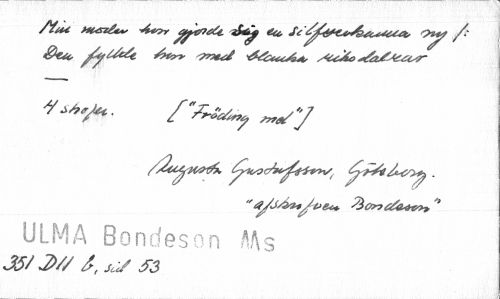 Min moder hon gjorde sig en silfverkanna ny /:
Den fyllde hon med blanka riksdalrar
—
4 strofer. ["Fröding med"]
Augusta Gustafsson, Göteborg.
"afskrifven Bondeson"
ULMA Bondeson Ms
351 D11 b, sid 53